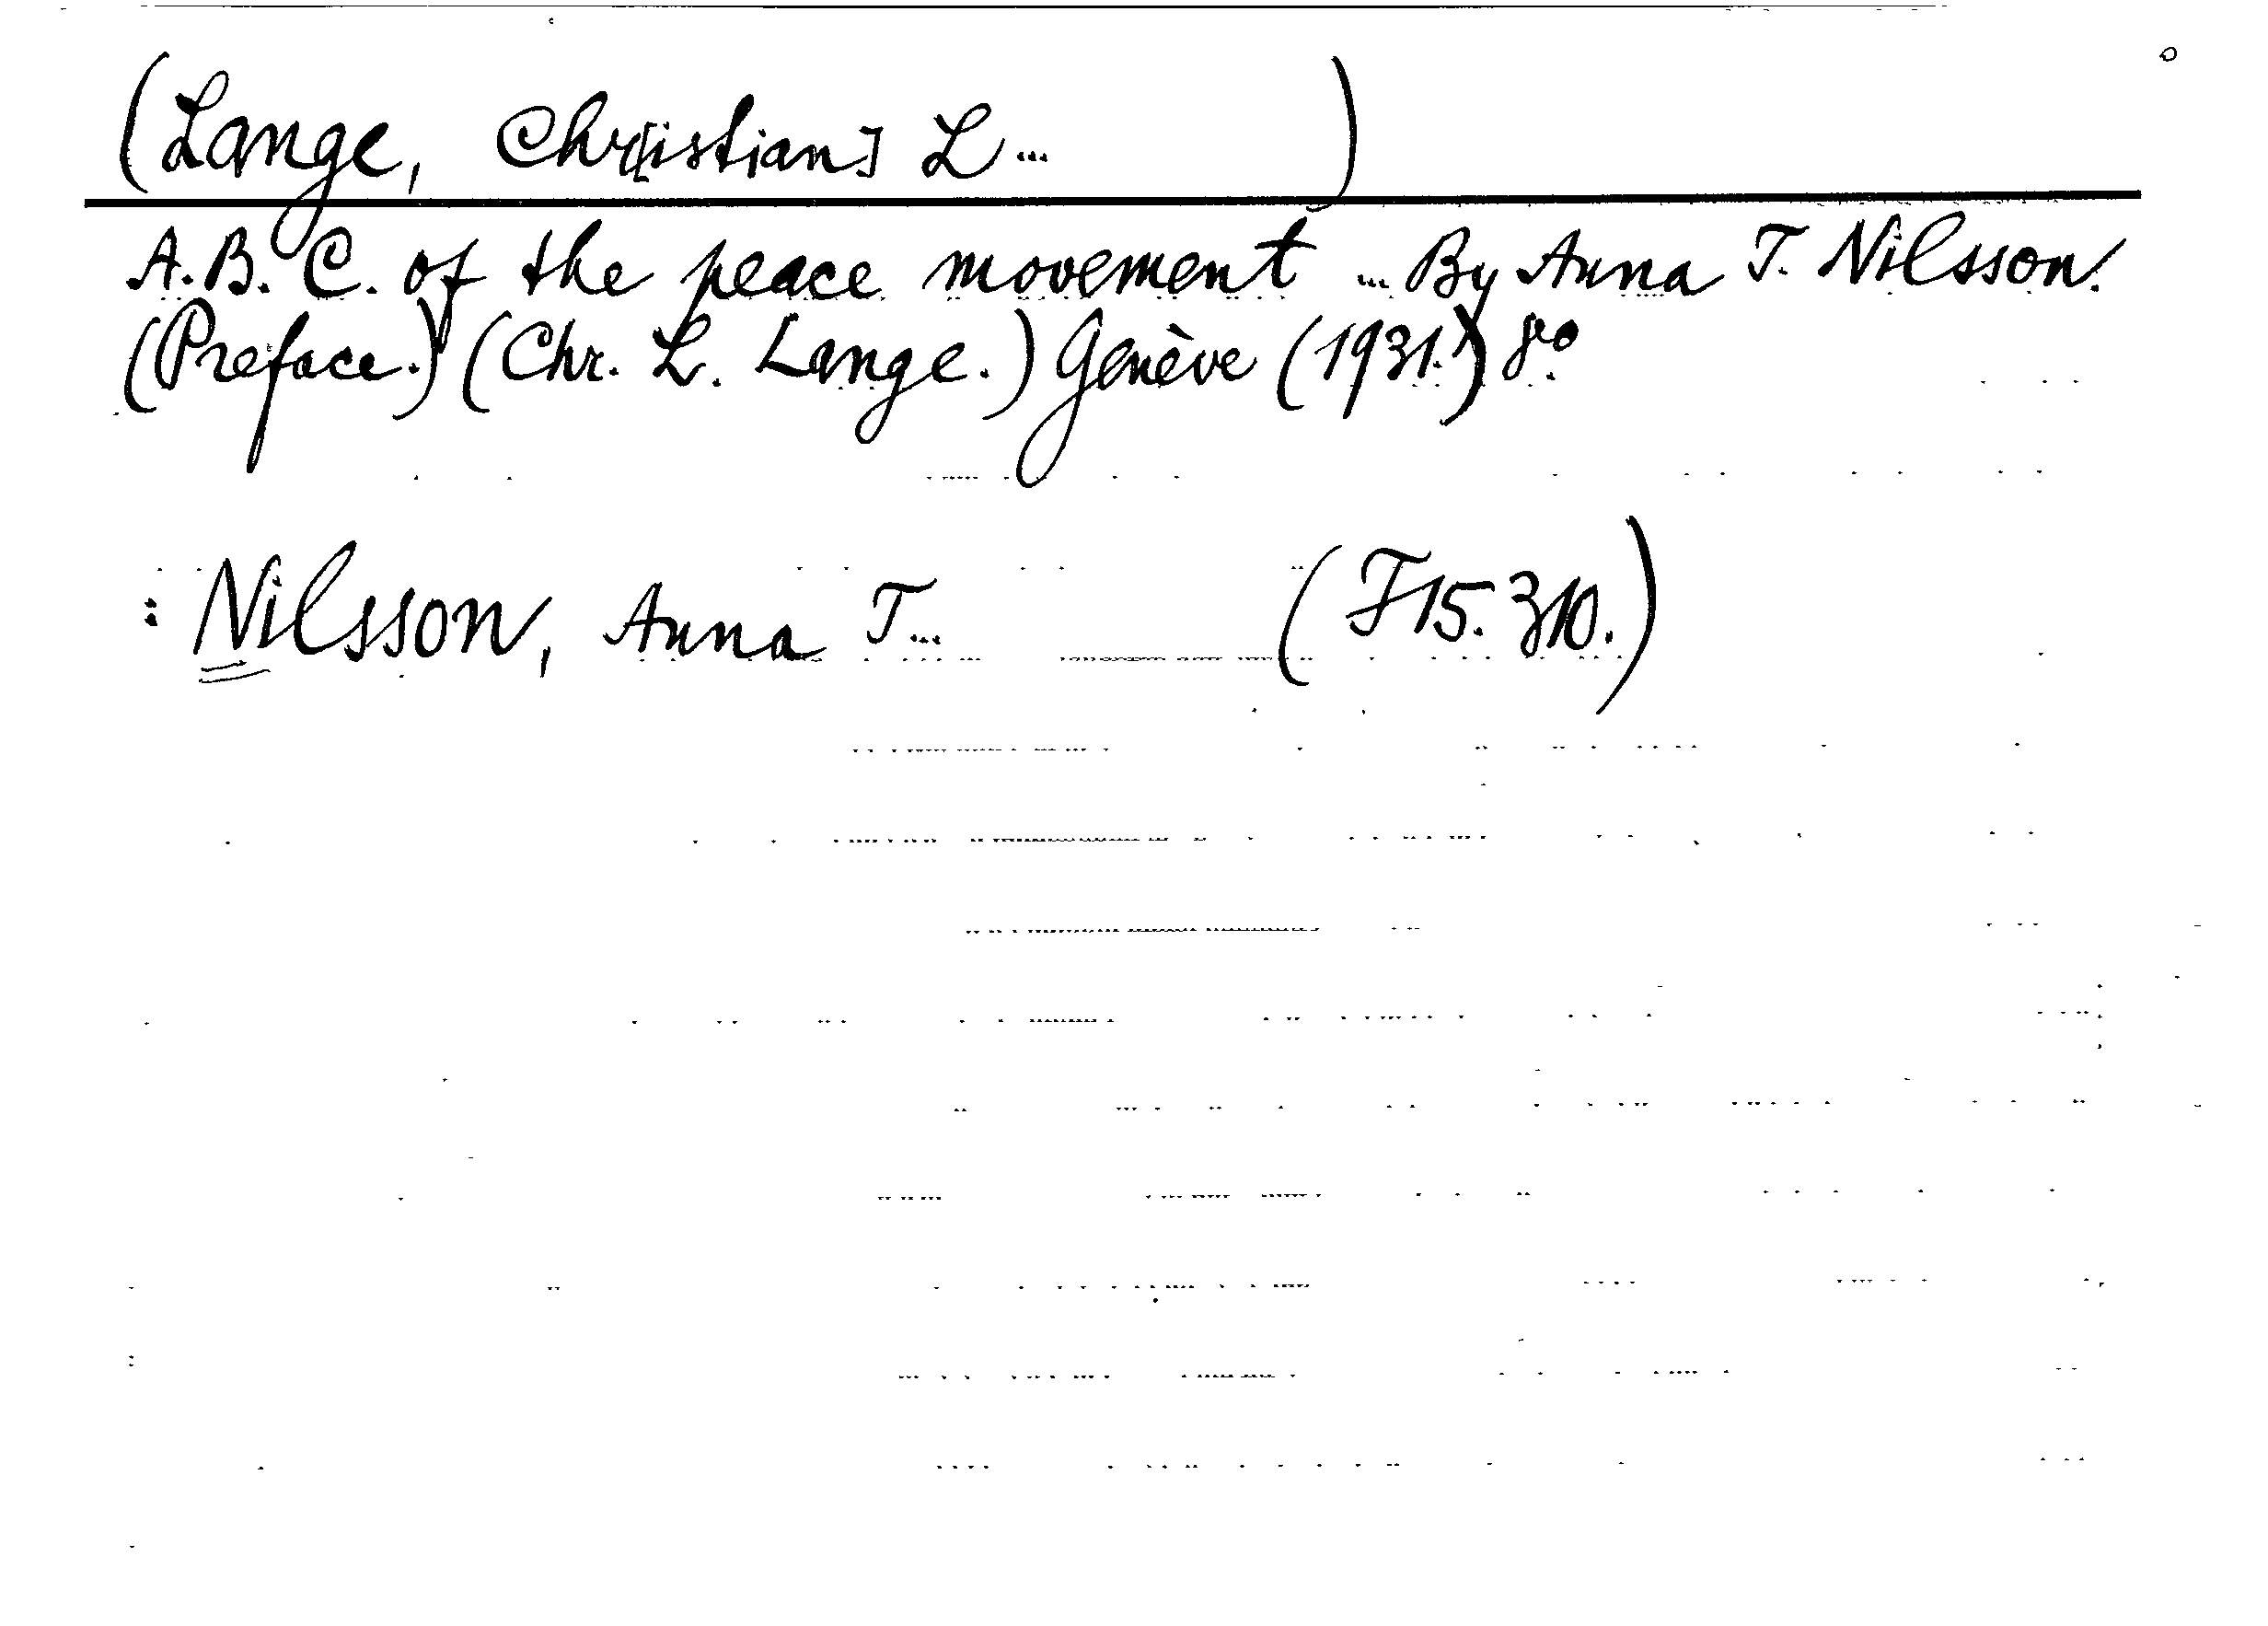 (Lange, Chr[istian] L... )
A.B.C. of the peace movement ... By Anna T. Nilsson.
(Preface.) (Chr. L. Lange.) Genève (1931.) 8:o
: Nilsson, Anna T... (F15.310.)